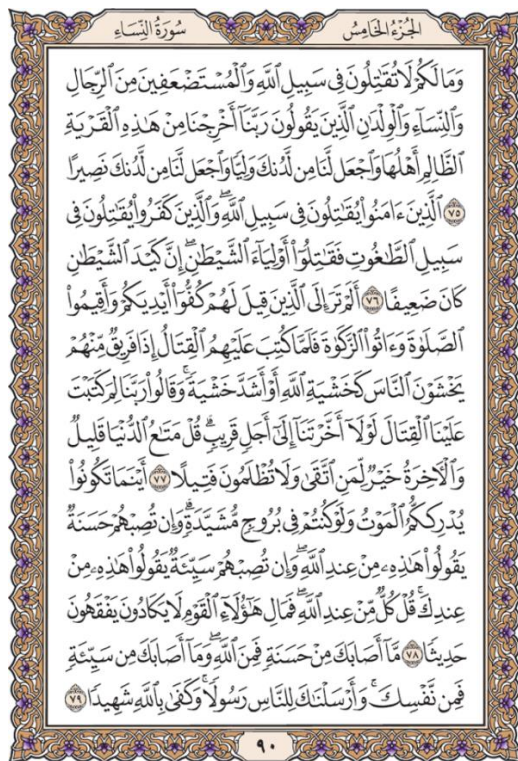 الجُزْءُ الخَامِسُ سُورَةُ النِّسَاءِ
وَمَا لَكُمْ لَا تُقَٰتِلُونَ فِي سَبِيلِ ٱللَّهِ وَٱلْمُسْتَضْعَفِينَ مِنَ ٱلرِّجَالِ
وَٱلنِّسَآءِ وَٱلْوِلْدَٰنِ ٱلَّذِينَ يَقُولُونَ رَبَّنَآ أَخْرِجْنَا مِنْ هَٰذِهِ ٱلْقَرْيَةِ
ٱلظَّالِمِ أَهْلُهَا وَٱجْعَل لَّنَا مِن لَّدُنكَ وَلِيًّا وَٱجْعَل لَّنَا مِن لَّدُنكَ نَصِيرًا
٧٥ ٱلَّذِينَ ءَامَنُوا۟ يُقَٰتِلُونَ فِي سَبِيلِ ٱللَّهِۖ وَٱلَّذِينَ كَفَرُوا۟ يُقَٰتِلُونَ فِي
سَبِيلِ ٱلطَّٰغُوتِ فَقَٰتِلُوٓا۟ أَوْلِيَآءَ ٱلشَّيْطَٰنِۖ إِنَّ كَيْدَ ٱلشَّيْطَٰنِ
كَانَ ضَعِيفًا ٧٦ أَلَمْ تَرَ إِلَى ٱلَّذِينَ قِيلَ لَهُمْ كُفُّوٓا۟ أَيْدِيَكُمْ وَأَقِيمُوا۟
ٱلصَّلَوٰةَ وَءَاتُوا۟ ٱلزَّكَوٰةَ فَلَمَّا كُتِبَ عَلَيْهِمُ ٱلْقِتَالُ إِذَا فَرِيقٌ مِّنْهُمْ
يَخْشَوْنَ ٱلنَّاسَ كَخَشْيَةِ ٱللَّهِ أَوْ أَشَدَّ خَشْيَةًۚ وَقَالُوا۟ رَبَّنَا لِمَ كَتَبْتَ
عَلَيْنَا ٱلْقِتَالَ لَوْلَآ أَخَّرْتَنَآ إِلَىٰٓ أَجَلٍ قَرِيبٍۗ قُلْ مَتَٰعُ ٱلدُّنْيَا قَلِيلٌ
وَٱلْءَاخِرَةُ خَيْرٌ لِّمَنِ ٱتَّقَىٰ وَلَا تُظْلَمُونَ فَتِيلًا ٧٧ أَيْنَمَا تَكُونُوا۟
يُدْرِككُّمُ ٱلْمَوْتُ وَلَوْ كُنتُمْ فِي بُرُوجٍ مُّشَيَّدَةٍۗ وَإِن تُصِبْهُمْ حَسَنَةٌ
يَقُولُوا۟ هَٰذِهِۦ مِنْ عِندِ ٱللَّهِۖ وَإِن تُصِبْهُمْ سَيِّئَةٌ يَقُولُوا۟ هَٰذِهِۦ مِنْ
عِندِكَۚ قُلْ كُلٌّ مِّنْ عِندِ ٱللَّهِۖ فَمَالِ هَٰٓؤُلَآءِ ٱلْقَوْمِ لَا يَكَادُونَ يَفْقَهُونَ
حَدِيثًا ٧٨ مَّآ أَصَابَكَ مِنْ حَسَنَةٍ فَمِنَ ٱللَّهِۖ وَمَآ أَصَابَكَ مِن سَيِّئَةٍ
فَمِن نَّفْسِكَۚ وَأَرْسَلْنَٰكَ لِلنَّاسِ رَسُولًاۚ وَكَفَىٰ بِٱللَّهِ شَهِيدًا ٧٩
٩٠